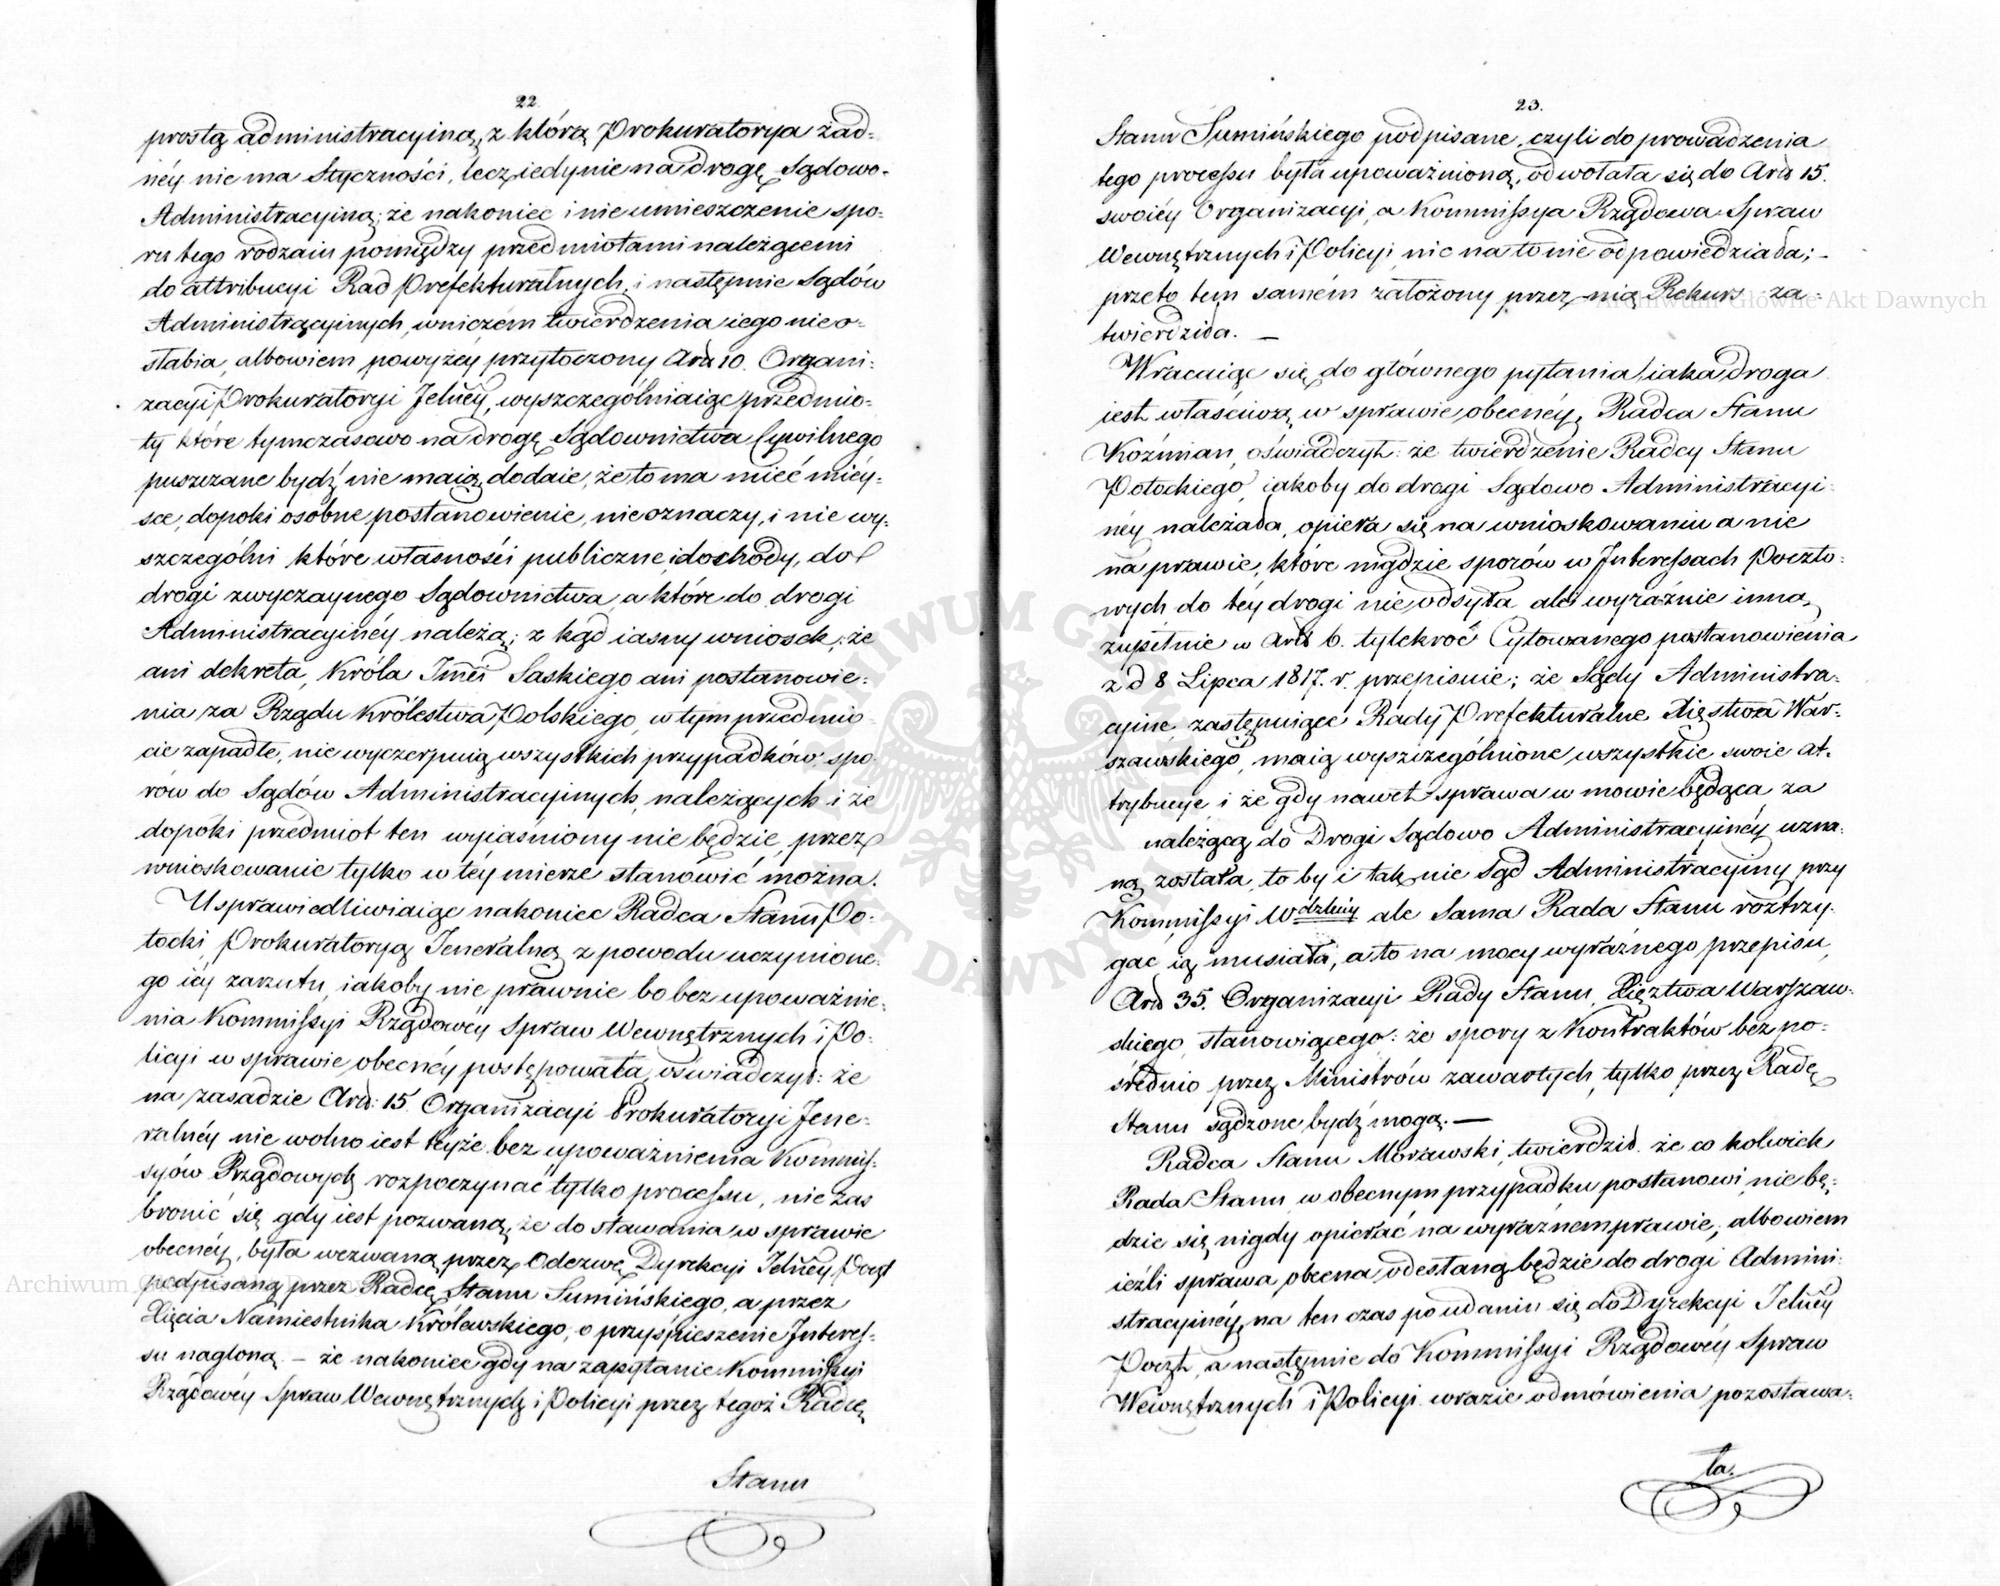 22.
prostą administracyiną, z którą Prokuratorya żad=
néy nie ma Styczności, lecz iedynie na drogę Sądowo-
Administracyiną; że nakoniec i nie umieszczenie spo=
ru tego rodzaiu pomiędzy przedmiotami należącemi
do attribucyi Rad Prefekturalnych, i następnie Sądów
Administracyinych, wniczém twierdzenia iego nie o=
słabia, albowiem powyżey przytoczony Art 10. Organi=
zacyi Prokuratoryi Jelney, wyszczególniaiąc przedmio=
ty które tymczasowo na drogę Sądownictwa Cywilnego
puszczane bydź nie maią, dodaie, że to ma mieć miéy=
sce, dopoki osóbne postanowienie, nie oznaczy, i nie wy=
szczególni które własności publiczne i dochody, do
drogi zwyczaynego Sądownictwa, a które do drogi
Administracyinéy należą; z kąd iasny wniosek, że
ani dekreta, Króla Jmći Saskiego ani postanowie=
nia za Rządu Królestwa Polskiego, w tym przedmio=
cie zapadłe, nie wyczerpuią wszystkich przypadków spo=
rów do Sądów Administracyinych, należących i że
dopoki przedmiot ten wyiaśniony nie będzie, przez
wnioskowanie tylko w téy mierze stanowić można.
Usprawiedliwiaiąc nakoniec Radca Stanu Po=
tocki, Prokuratoryą Jeneralną z powodu uczynione=
go iéy zarzutu, iakoby nie prawnie bo bez upoważnie=
nia Kommissyi Rządowéy Spraw Wewnętrznych i Po=
licyi w sprawie obecnéy postępowała, oświadczył: że
na zasadzie Art: 15. Organizacyi Prokuratoryi Jene=
ralnéy nie wolno iest teyże bez upoważnienia Kommis=
syów Rządowych rozpoczynać tylko processu, nie zaś
bronić się gdy iest pozwaną, że do stawania w sprawie
obecnéy, była wezwaną przez Odezwę Dyrekcyi Jelney Poczt
podpisaną przez Radcę Stanu Sumińskiego, a przez
Xięcia Namiestnika Królewskiego, o przyśpieszenie Interes=
su nagloną. – że nakoniec gdy na zapytanie Kommissyi
Rządowéy Spraw Wewnętrznych i Policyi przez tegoż Radcę
Stanu
23.
Stanu Sumińskiego podpisane, czyli do prowadzenia
tego processu była upoważnioną, odwołała się do Art 15.
swoiéy Organizacyi, a Kommissya Rządowa Spraw
Wewnętrznych i Policyi nic na to nie odpowiedziała; –
przeto tym samém założony przez nią Rekurs za=
twierdziła. –
Wracaiąc się do głównego pytania, iaka droga
iest właściwą w sprawie obecnéy, Radca Stanu
Koźmian, oświadczył: że twierdzenie Radcy Stanu
Potockiego, iakoby do drogi Sądowo Administracyi=
néy należała, opiera się na wnioskowaniu a nie
na prawie, które nigdzie sporów w Interessach Poczto=
wych do téy drogi nie odsyła ale wyraźnie inną
zupełnie w Art 6. tylekroć Cytowanego postanowienia
z d 8 Lipca 1817. r. przepisuie; że Sądy Administra=
cyine, zastępuiące Rady Prefekturalne Xięstwa War=
szawskiego, maią wyszczególnione wszystkie swoie at=
trybucye, i że gdy nawet sprawa w mowie będąca za
należącą do Drogi Sądowo Administracyinéy uzna=
ną została, to by i tak nie Sąd Administracyiny przy
Kommissyi Wdzkiey ale Sama Rada Stanu roztrzy=
gać ią musiała, a to na mocy wyraźnego przepisu,
Art 35. Organizacyi Rady Stanu, Xięztwa Warszaw=
skiego, stanowiącego: że spory z Kontraktów bezpo=
średnio przez Ministrów zawartych, tylko przez Radę
Stanu sądzone bydź mogą. –
Radca Stanu Morawski, twierdził że co kolwiek
Rada Stanu w obecnym przypadku postanowi, nie bę=
dzie się nigdy opierać na wyraźnem prawie, albowiem
ieźli sprawa obecna odesłaną będzie do drogi Admini=
stracyinéy, na ten czas po udaniu się do Dyrekcyi Jelney
Poczt, a następnie do Kommissyi Rządowéy Spraw
Wewnętrznych i Policyi wrazie odmówienia pozostawa=
ła.
Archiwum Główne Akt Dawnych